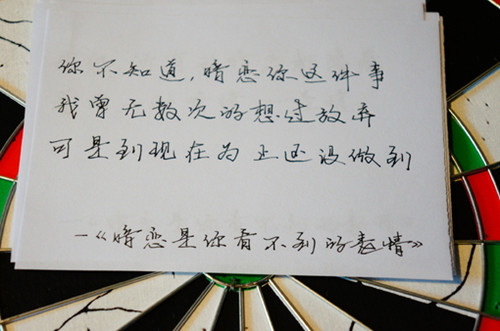 你不知道，暗恋你这件事
我曾无数次的想过放弃
可是到现在为止还没做到
—《暗恋是你看不到的表情》